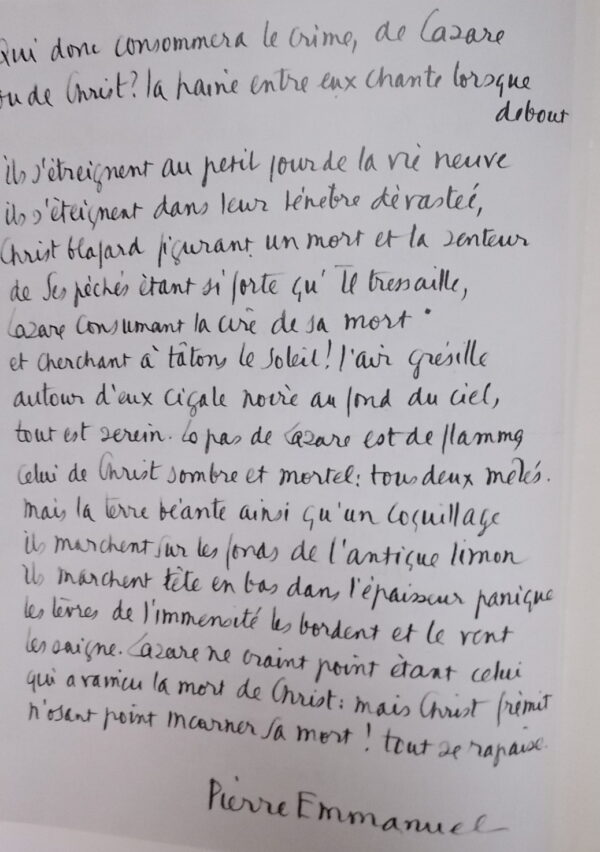 Qui donc consommera le crime, de Lazare
ou de Christ? la haine entre eux chante lorsque
debout
ils s'étreignent au petit jour de la vie neuve
ils s'éteignent dans leur ténèbre dévastée,
Christ blafard figurant un mort et la senteur
de Ses péchés étant si forte qu'Il tressaille,
Lazare consumant la cire de sa mort
et cherchant à tâtons le soleil! l'air grésille
autour d'eux cigale noire au fond du ciel,
tout est serein. Le pas de Lazare est de flamme
celui de Christ sombre et mortel: tous deux mêlés.
Mais la terre béante ainsi qu'un coquillage
ils marchent sur les fonds de l'antique limon
Ils marchent tête en bas dans l'épaisseur panique
les lèvres de l'immensité les bordent et le vent
les saigne. Lazare ne craint point étant celui
qui a vaincu la mort de Christ: mais Christ frémit
n'osant point incarner Sa mort! tout se rapaise.
Pierre Emmanuel